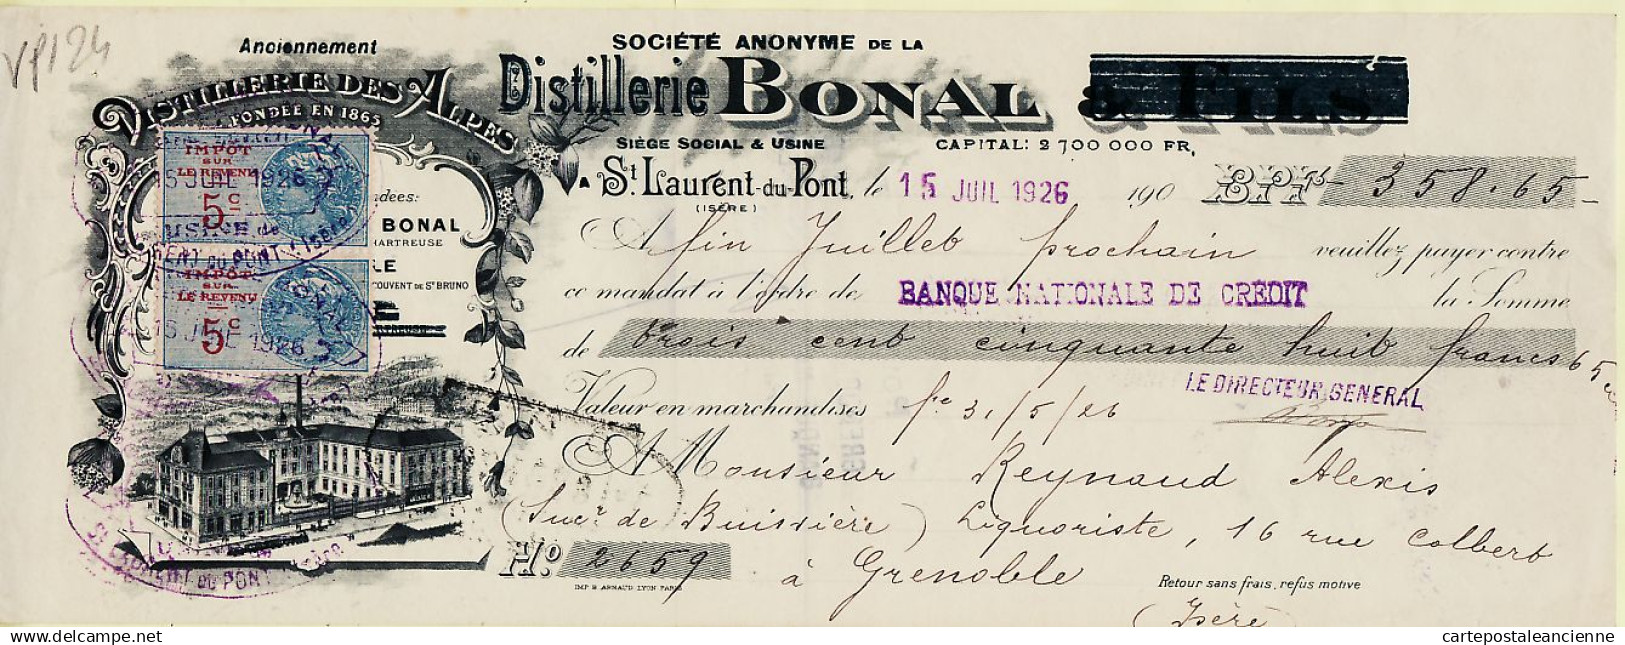 VP124
Anciennement
DISTILLERIE DES ALPES
FONDÉE EN 1865
SOCIÉTÉ ANONYME DE LA
Distillerie BONAL & FILS
SIÈGE SOCIAL & USINE
CAPITAL: 2 700 000 FR,
A St. Laurent-du-Pont, le 15 JUIL 1926 190 BPF -358.65-
(ISÈRE)
IMPÔT
SUR
LE REVENU
5c
15 JUIL 1926
BONAL
HARTREUSE
LE
COUVENT DE St BRUNO
IMPÔT
SUR
LE REVENU
5c
15 JUIL 1926
A fin Juillet prochain veuillez payer contre
ce mandat à l'ordre de BANQUE NATIONALE DE CRÉDIT la Somme
de trois cent cinquante huit francs 65
LE DIRECTEUR GENERAL
Valeur en marchandises fre 31/5/26
A Monsieur Reynaud Alexis
(Sucr de Buissière) Liquoriste, 16 rue Colbert
No. 2659 à Grenoble
(Isère)
IMP B. ARNAUD LYON PARIS
Retour sans frais, refus motivé
St LAURENT DU PONT (Isère)
carte-postale-ancienne.com > Delcampe.net
cartepostaleancienne